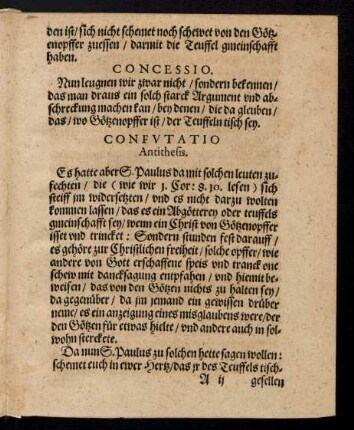 den ist / sich nicht schemet noch schewet von den Götz-
enopffer zuessen / darmit die Teuffel gmeinschafft
haben.
CONCESSIO.
Nun leugnen wir zwar nicht / sondern bekennen /
das man draus ein solch starck Argument vnd ab-
schreckung machen kan / bey denen / die da gleuben /
das / wo Götzenopffer ist / der Teuffeln tisch sey.
CONFVTATIO
Antithesis.
Es hatte aber S. Paulus da mit solchen leuten zu-
fechten / die (wie wir 1. Cor: 8. 10. lesen) sich
steiff jm widersetzten / vnd es nicht darzu wolten
kommen lassen / das es ein Abgötterey oder teuffels
gmeinschafft sey / wenn ein Christ von Götzenopffer
isset vnd trincket: Sondern stunden fest darauff /
es gehöre zur Christlichen freiheit / solche opffer / wie
andere von Gott erschaffene speis vnd tranck one
schew mit dancksagung empfahen / vnd hiemit be-
weisen / das von den Götzen nichts zu halten sey /
da gegenüber / da jm jemand ein gewissen drüber
neme / es ein anzeigung eines misglaubens were / der
den Götzen für etwas hielte / vnd andere auch in sol-
wohn sterckete.
Da nun S. Paulus zu solchen hette sagen wollen:
schemet euch in ewer Hertz / das jr des Teuffels tisch-
A ij gesellen